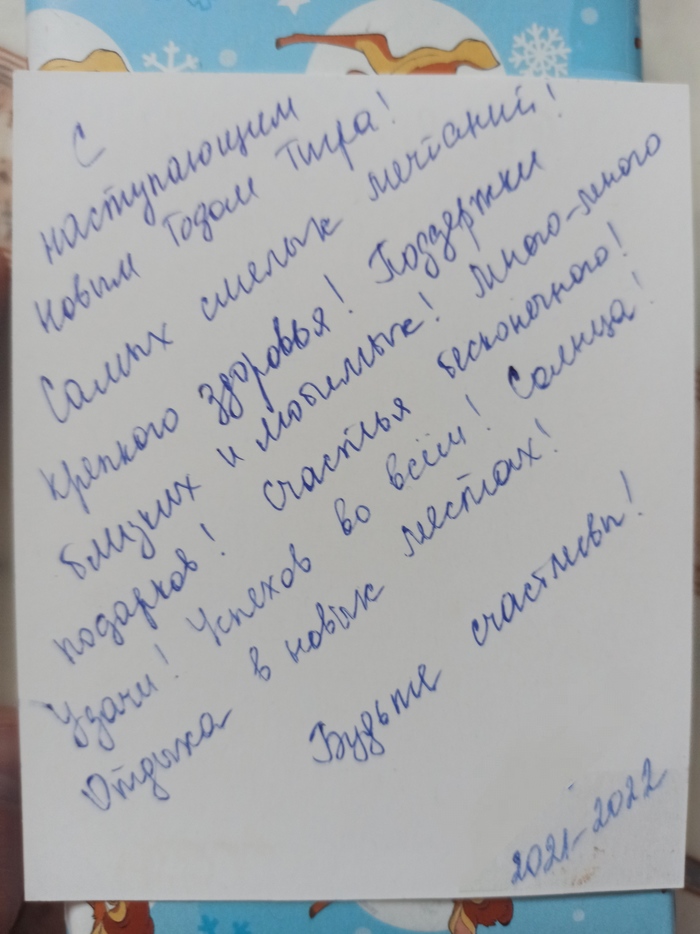 С
наступающим
Новым Годом Тигра!
Самых смелых мечтаний!
Крепкого здоровья! Поддержки
близких и любимых! Много-много
подарков! Счастья бесконечного!
Удачи! Успехов во всём! Солнца!
Отдыха в новых местах!
Будьте счастливы!
2021-2022